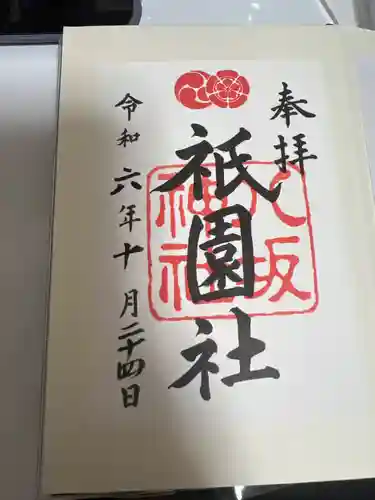 奉拝
八坂
神社
祇園社
令和六年十月二十四日